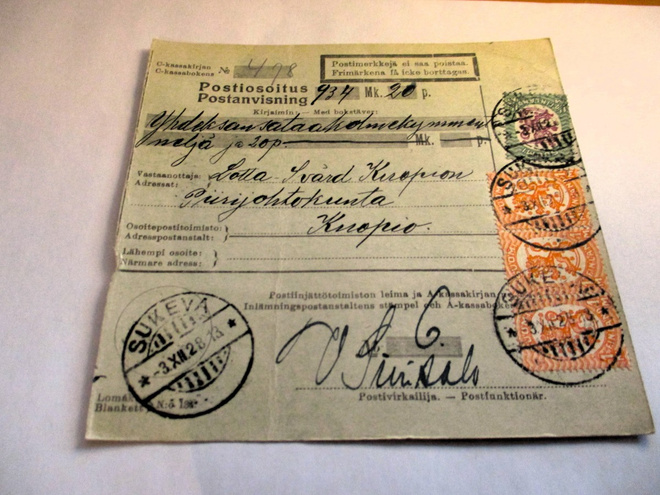 U-kassakirjan
C-kassabokens № 498
Postimerkkejä ei saa poistaa.
Frimärkena få icke borttagas.
Postiosoitus
Postanvisning 934 Mk. 20 p.
Kirjaimin: — Med bokstäver:
Yhdeksänsataakolmekymmentä
neljä ja 20 p Mk. p.
Vastaanottaja:
Adressat:
Lotta-Svärd Kuopion
Piirijohtokunta
Osoitepostitoimisto:
Adresspostanstalt:
Kuopio.
Lähempi osoite:
Närmare adress:
Postiinjättötoimiston leima ja A-kassakirjan
Inlämningspostanstaltens stempel och A-kassabokens
SUKEVA
-3.XII.28.13
SUKEVA
3.XII.28
6.
Postivirkailija. — Postfunktionär.
Blankett N:o